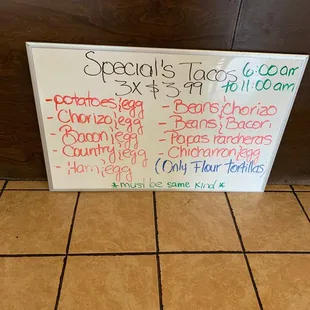 Special's Tacos 6:00 am
3 x $3.99 to 11:00 am
-potatoes;egg
-Chorizo;egg
-Bacon;egg
-Country;egg
-Ham;egg
-Beans;Chorizo
-Beans;Bacon
-Papas rancheras
-Chicharron;egg
(Only Flour Tortillas
*must be same kind*